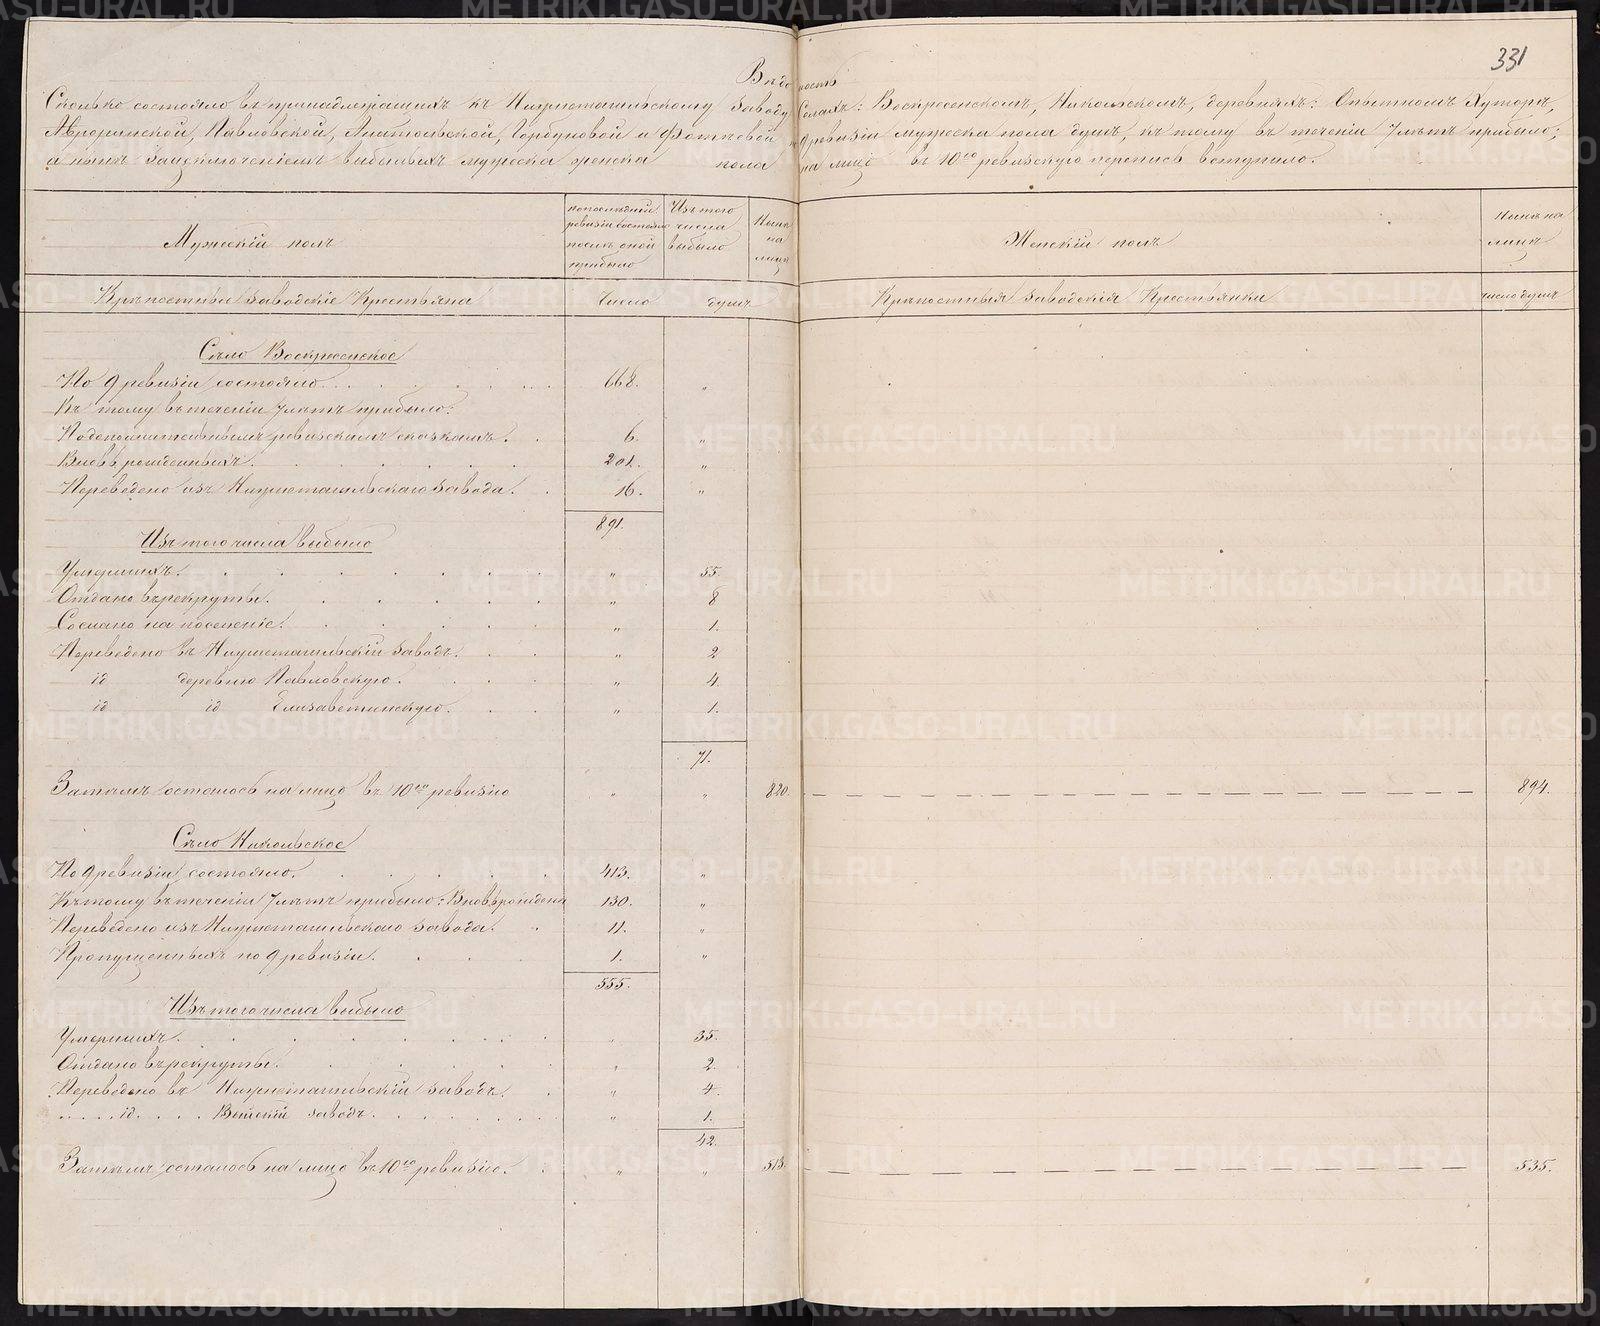 331
Вѣдомость
Сколько состояло въ принадлежащихъ къ Нижнетагильскому заводу Селахъ: Воскресенскомъ, Никольскомъ, деревняхъ: Опытномъ Хуторѣ,
Авроринской, Павловской, Анатольской, Горбуновой и Фотѣевой по 9 ревизіи мужеска пола душъ, къ тому въ теченіи 7 лѣтъ прибыло;
а нынѣ за исключеніемъ выбывшихъ мужеска женска пола на лицо въ 10ую ревизскую перепись вступило.
Мужескій полъ
по послѣдней ревизіи состояло после оной прибыло
Изъ того числа выбыло
Нынѣ на лицо
Женскій полъ
Нынѣ на лицѣ
Крѣпостные заводскіе Крестьяна
Число душъ
Крѣпостныя заводскія Крестьянки
число душъ
Сѣло Воскресенское
По 9 ревизіи состояло 668. "
Къ тому въ теченіи 7 лѣтъ прибыло:
По дополнительнымъ ревизскимъ сказкамъ. 6. "
Вновь рожденныхъ. 201. "
Переведено изъ Нижнетагильскаго завода. 16. "
891.
Изъ того числа выбыло
Умершихъ. " 55.
Отдано въ рекруты. " 8
Сослано на поселеніе. " 1.
Переведено въ Нижнетагильскій заводъ. " 2
id деревню Павловскую. " 4.
id id Елизаветинскую. " 1.
71.
Затѣмъ осталось на лицо въ 10ую ревизію " " 820. 894.
Сѣло Никольское
По 9 ревизіи состояло. 413. "
Къ тому въ теченіи 7 лѣтъ прибыло: Вновь рожден 130. "
Переведено изъ Нижнетагильскаго завода. 11. "
Пропущенныхъ по 9 ревизіи. 1. "
555.
Изъ того числа выбыло
Умершихъ. " 35.
Отдано въ рекруты. " 2.
Переведено въ Нижнетагильскій заводъ. " 4.
id. Выйскій заводъ. " 1.
42.
Затѣмъ осталось на лицо въ 10ую ревизію. " " 513. 535.
METRIKI.GASO-URAL.RU